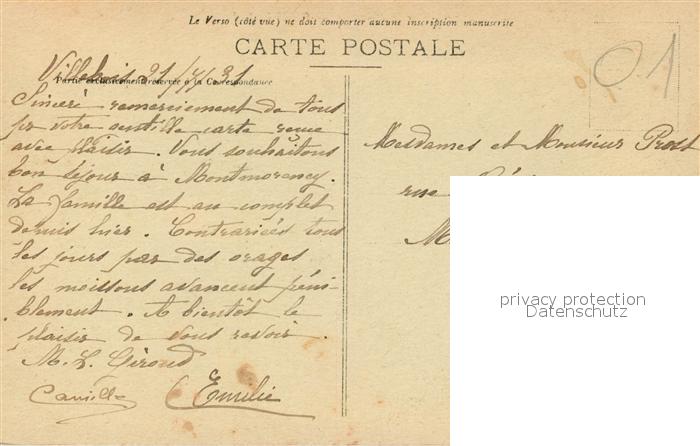 Le Verso (côté vue) ne doit comporter aucune inscription manuscrite
CARTE POSTALE
Partie exclusivement réservée à la Correspondance
Villebois 21/7/31
Sincère remerciement de tous
pr votre gentille carte reçue
avec plaisir. Vous souhaitons
bon séjour à Montmorency.
La famille est au complet
depuis hier. Contrariés tous
les jours par des orages
les moissons avancent péni-
blement. A bientôt le
plaisir de vous revoir.
M. L. Giroud
Camille Emilie
01
Mesdames et Monsieur Prost
rue
M
privacy protection
Datenschutz